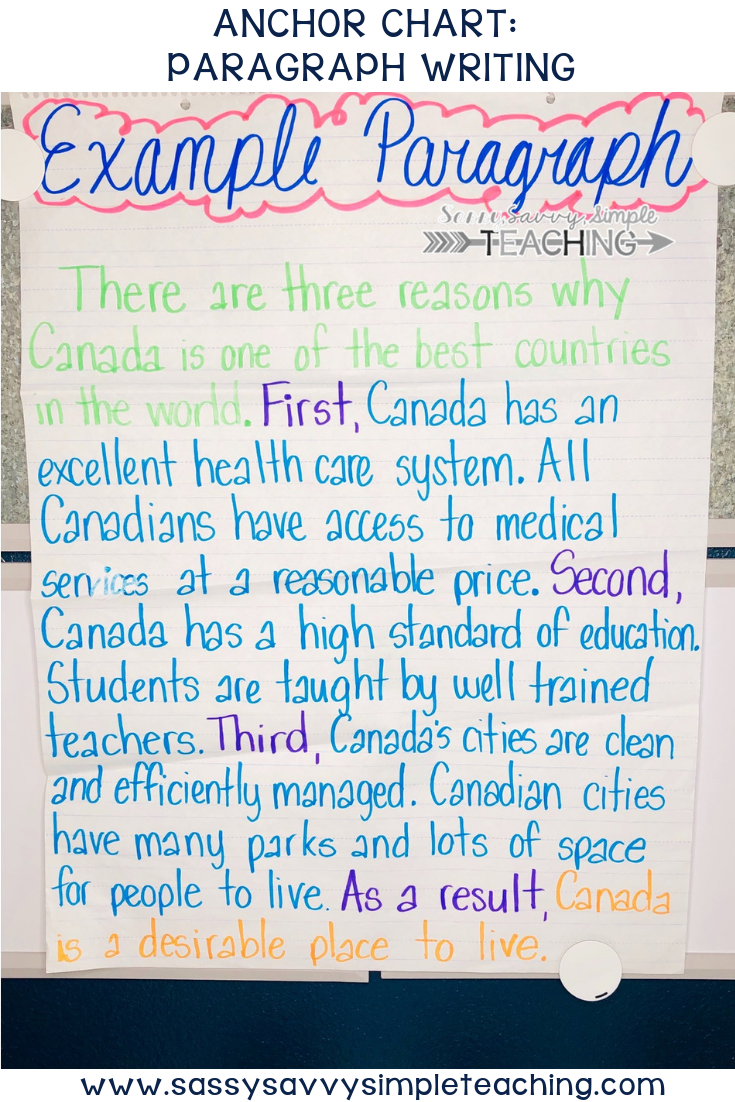 ANCHOR CHART:
PARAGRAPH WRITING
Example Paragraph
Savvy, Simple
TEACHING
There are three reasons why
Canada is one of the best countries
in the world. First, Canada has an
excellent health care system. All
Canadians have access to medical
services at a reasonable price. Second,
Canada has a high standard of education.
Students are taught by well trained
teachers. Third, Canada's cities are clean
and efficiently managed. Canadian cities
have many parks and lots of space
for people to live. As a result, Canada
is a desirable place to live.
www.sassysavvysimpleteaching.com